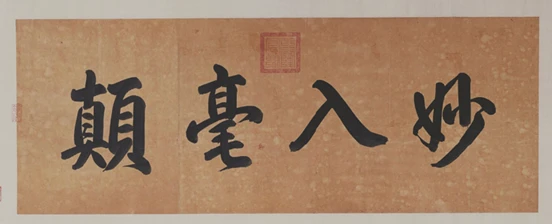 妙入毫顛